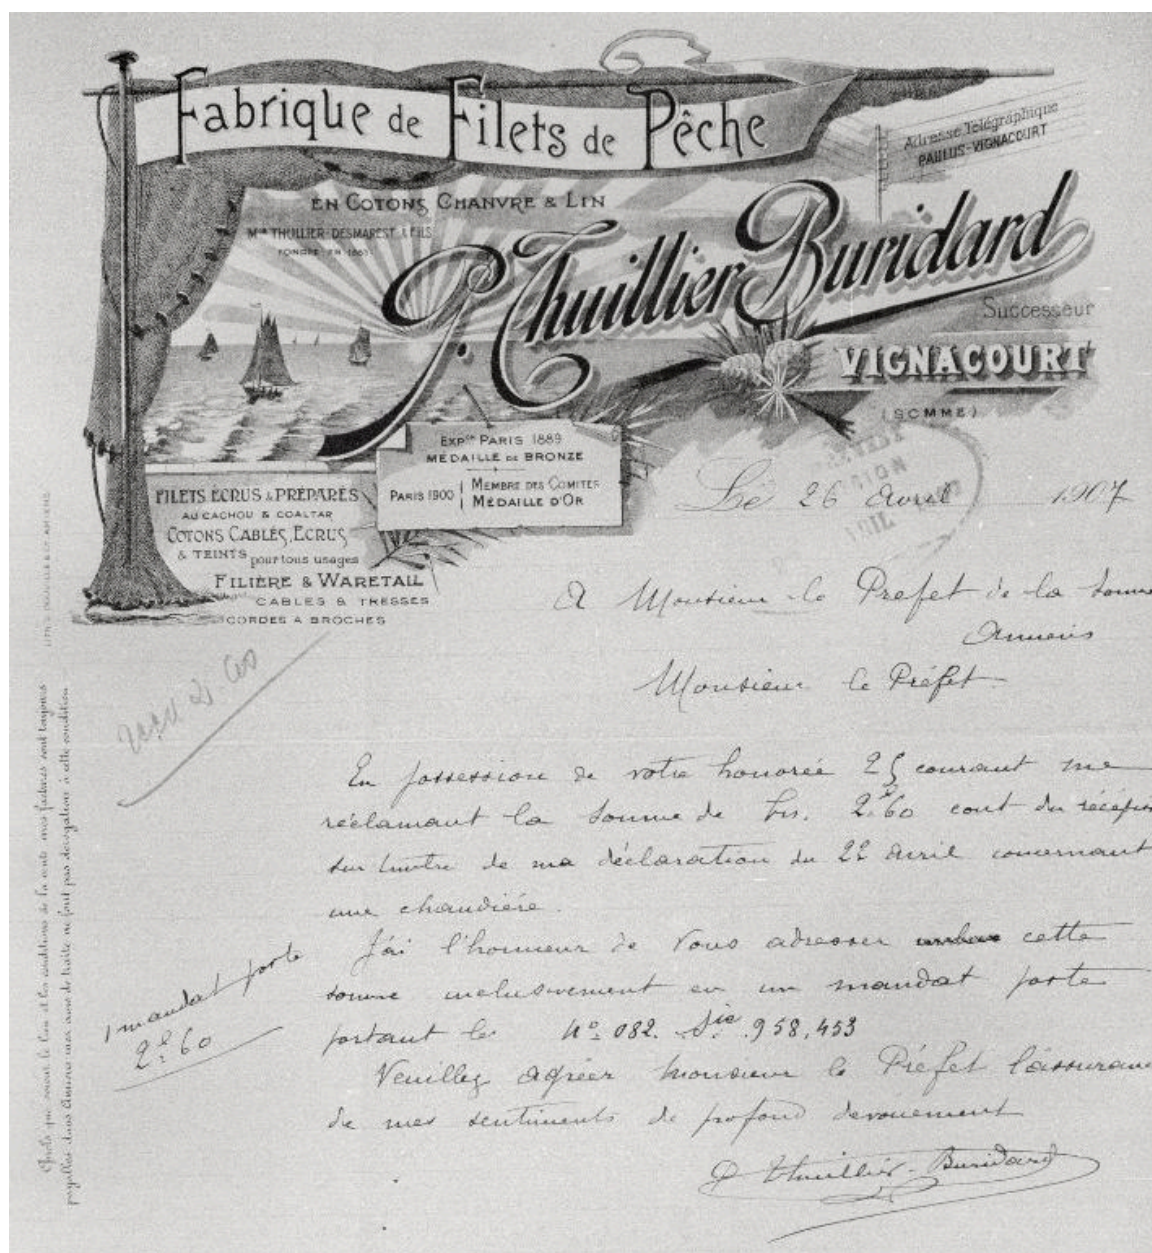 Fabrique de Filets de Pêche
Adresse Télégraphique
PAULUS-VIGNACOURT
EN COTONS, CHANVRE & LIN
Mon THUILLIER-DESMAREST & FILS
FONDÉE EN
P. Thuillier Buridard
Successeur
VIGNACOURT
(SOMME)
EXPon PARIS 1889
MÉDAILLE DE BRONZE
PARIS 1900
MEMBRE DES COMITÉS
MÉDAILLE D'OR
FILETS ÉCRUS & PRÉPARÉS
AU CACHOU & COALTAR
COTONS CABLÉS, ÉCRUS
& TEINTS pour tous usages
FILIÈRE & WARETAIL
CABLES & TRESSES
CORDES A BROCHES
Le 26 Avril 1907
A Monsieur le Préfet de la Somme
Amiens
Monsieur le Préfet
En possession de votre honorée 25 courant me
réclamant la somme de frs. 2f60 cout du récépis
sur timbre de ma déclaration du 22 avril concernant
une chaudière.
J'ai l'honneur de vous adresser cette
somme inclusivement en un mandat poste
portant le No 082. Sie 958,453
Veuillez agréer Monsieur le Préfet l'assurance
de mes sentiments de profond dévouement
P Thuillier-Buridard
1 mandat poste
2f60
Quels que soient le lieu et les conditions de la vente mes factures sont toujours
payables dans Amiens mes avis de traite ne font pas dérogation à cette condition